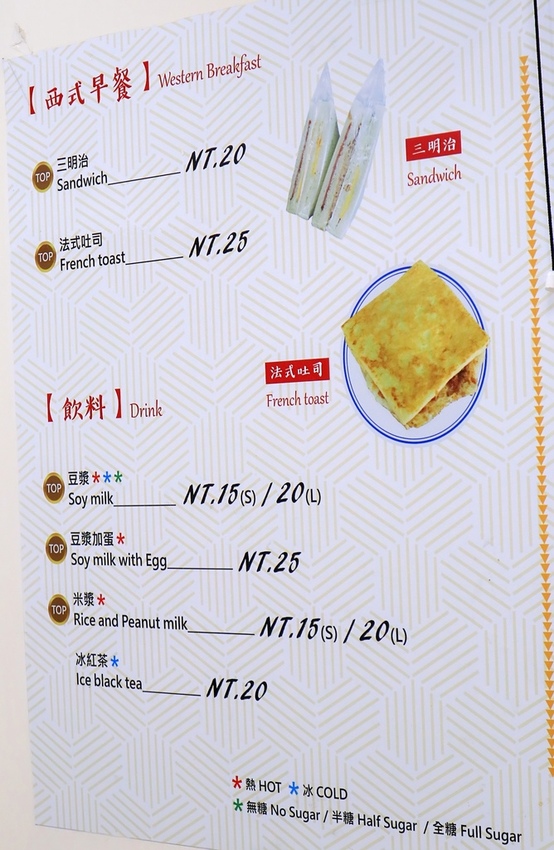 【西式早餐】Western Breakfast
TOP 三明治
Sandwich NT.20
三明治
Sandwich
TOP 法式吐司
French toast NT.25
法式吐司
French toast
【飲料】Drink
TOP 豆漿***
Soy milk NT.15(S) / 20(L)
TOP 豆漿加蛋*
Soy milk with Egg NT.25
TOP 米漿*
Rice and Peanut milk NT.15(S) / 20(L)
冰紅茶*
Ice black tea NT.20
*熱 HOT *冰 COLD
*無糖 No Sugar / 半糖 Half Sugar / 全糖 Full Sugar